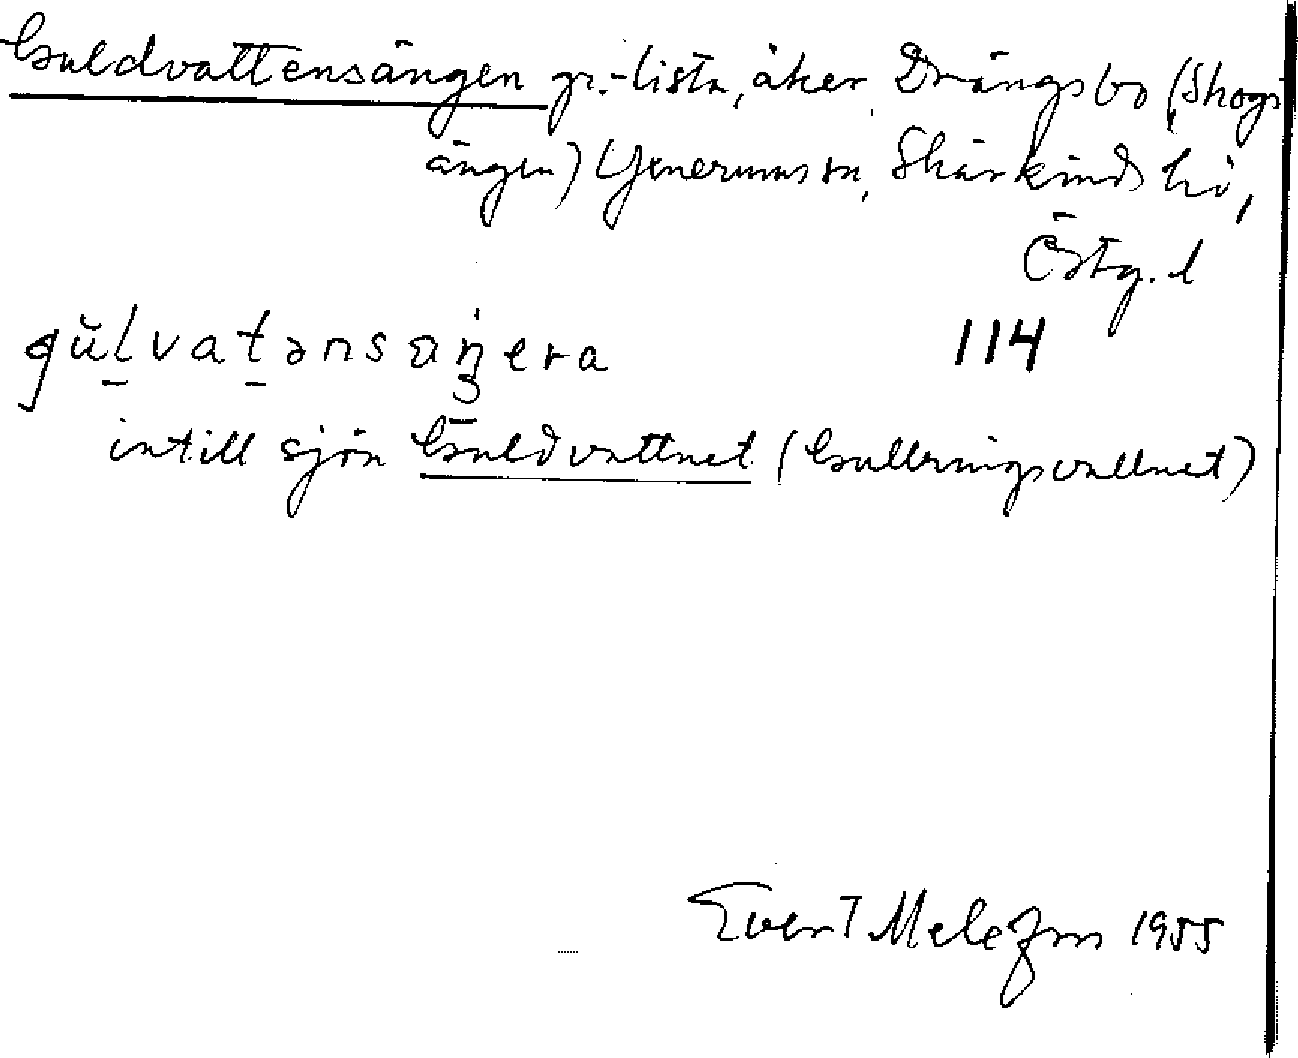 Guldvattensängen gr.-lista, åker, Drängsbo (Skogs
ängen) Yenerums sn, Skärkinds hd,
Östg. l
gŭlvatənsäŋera 114
intill sjön Guldvattnet (Gullringsvattnet)
Evert Melefors 1955